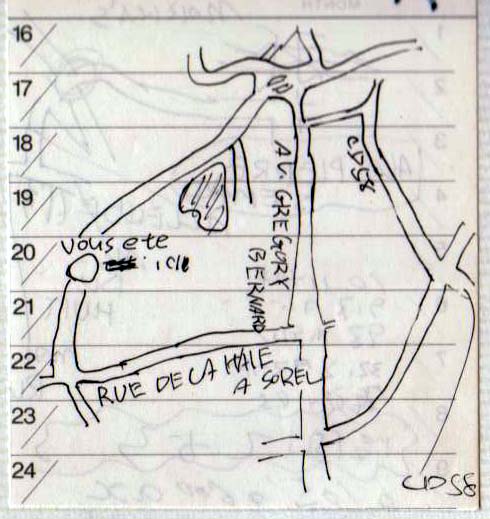 MONTH
16
17
18
19
20
21
22
23
24
CD58
AV. GREGORY
BERNARD
vous ete
ici
RUE DE LA HAIE
A SOREL
CD58